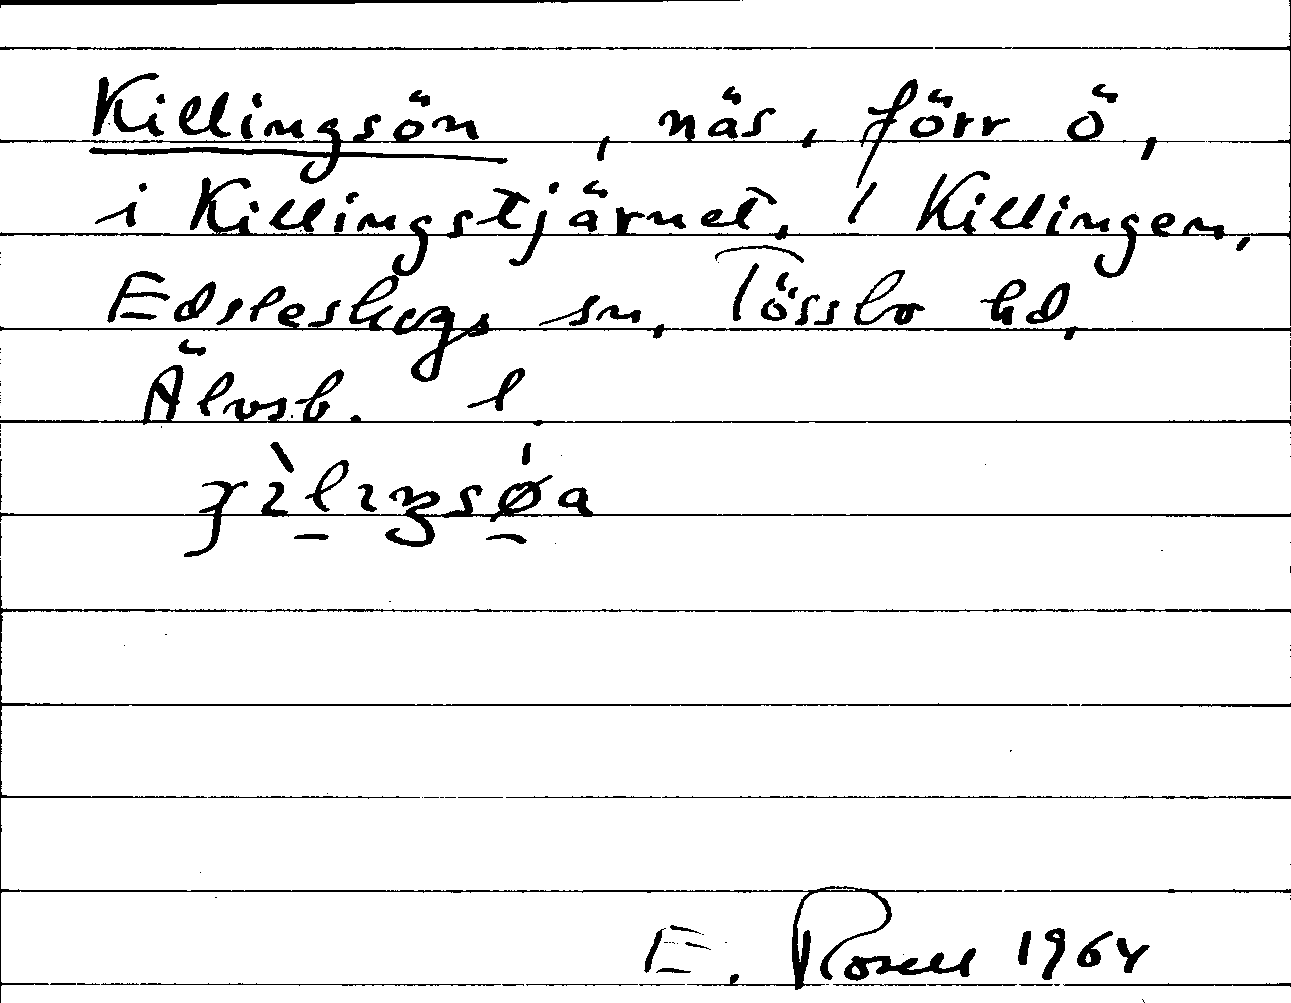 Killingsön, näs, förr ö,
i Killingstjärnet, / Killingen,
Edsleskogs sn, Tössbo hd,
Älvsb. l.
E. Rosell 1964